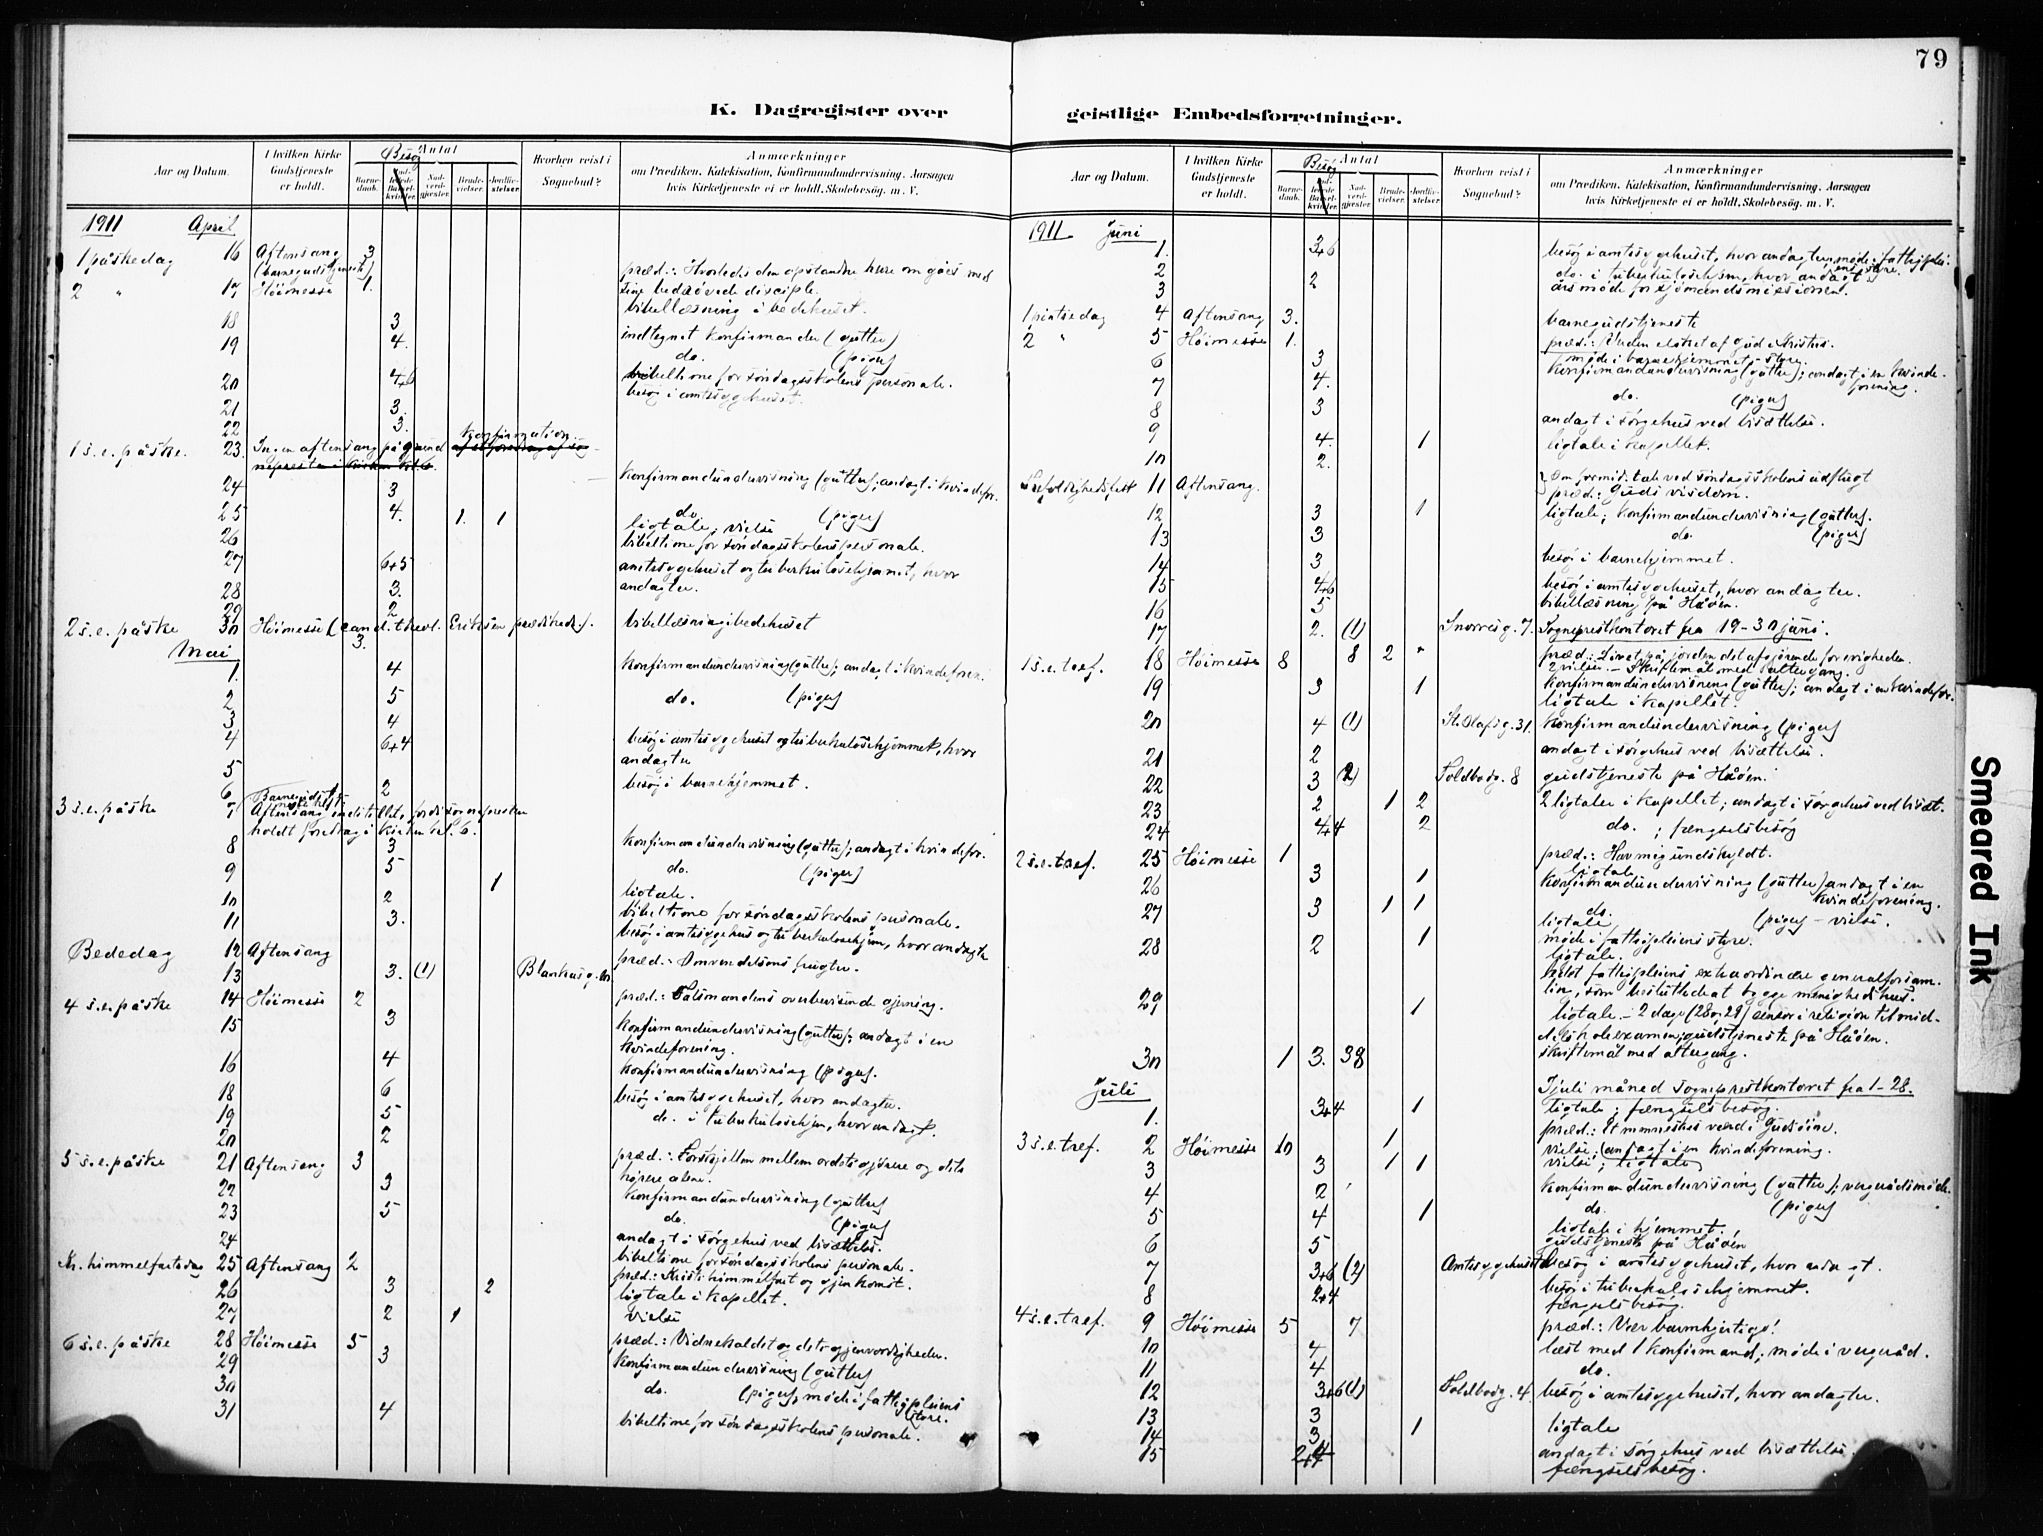 79
K. Dagregister over geistlige Embedsforretninger.
Aar og Datum.
I hvilken Kirke Gudstjeneste er holdt.
Antal
Besøg
Barnedaab.
Indledede Barselkvinder.
Nadverdgjester.
Brudevielser.
Jordfæstelser.
Hvorhen reist i Sognebud?
Anmærkninger
om Prædiken, Katekisation, Konfirmandundervisning, Aarsagen
hvis Kirketjeneste ei er holdt, Skolebesøg. m. V.
1911 April
1 påskedag 16 Aftensang 3
(barnegudstjeneste)
præd.: Hvorledes den opstandne herre omgåes med
2 " 17 Høimesse 1. sine bedrøvede disciple.
bibellæsning i bedehuset.
18 3
19 4. indtegnet konfirmander (gutter)
do. (piger)
20 4+6 bibeltime for søndagsskolens personale.
besøg i amtssygehuset.
21 3.
22 3.
1 s. e. påske. 23 Ingen aftensang på grund konfirmation
24 3 konfirmandundervisning (gutter); andagt i kvindefor.
25 4. 1. 1 do. (piger)
ligtale; vielse
26 bibeltime for søndagsskolens personale.
27 6+5 amtssygehuset og tuberkulosehjemmet, hvor
28 3. andagter.
29 2
2 s. e. påske 30 Høimesse (cand. theol. Eriksen prædikede). bibellæsning i bedehuset
3.
Mai
1. 4 konfirmandundervisning (gutter); andagt i kvindeforen.
2 5 do. (piger)
3 4
4 6+4 besøg i amtssygehuset og tuberkulosehjemmet, hvor
andagter
5 besøg i barnehjemmet.
6 2
3 s. e. påske 7 Aftensang indstillet, fordi sognepresten
holdt foredrag i kirken kl. 6.
8 3 konfirmandundervisning (gutter); andagt i kvindefor.
9 5 do. (piger)
10 2 1 ligtale.
11 3. bibeltime for søndagsskolens personale.
besøg i amtssygehus og tuberkulosehjem, hvor andagter
Bededag 12 Aftensang præd.: Omvendelsens frugter.
13 3. (1)
4 s. e. påske 14 Høimesse 2 præd.: Talsmandens overbevisende gjerning.
15 3 konfirmandundervisning (gutter); andagt i en
kvindeforening.
16 4 konfirmandundervisning (piger).
18 6 besøg i amtssygehuset, hvor andagter.
19 5 do. i tuberkulosehjem, hvor andagt.
20 2
5 s. e. påske 21 Aftensang 3 præd.: Forskjellen mellem ordets gjørere og dets
hørere alene.
22 3 konfirmandundervisning (gutter)
23 5 do. (piger)
24 andagt i sørgehus ved bisættelse.
bibeltime for søndagsskolens personale.
Kr. himmelfartsdag 25 Aftensang 2 præd.: Kristi himmelfart og gjenkomst.
26 3 2 ligtale i kapellet.
27 2 1 vielse
6 s. e. påske 28 Høimesse 5 præd.: Vidnekaldet og dets gjenvordigheder.
29 3 konfirmandundervisning (gutter)
30 do. (piger), møde i fattigpleiens
styre.
31 4 bibeltime for søndagsskolens personale.
Aar og Datum.
I hvilken Kirke Gudstjeneste er holdt.
Antal
Besøg
Barnedaab.
Indledede Barselkvinder.
Nadverdgjester.
Brudevielser.
Jordfæstelser.
Hvorhen reist i Sognebud?
Anmærkninger
om Prædiken, Katekisation, Konfirmandundervisning, Aarsagen
hvis Kirketjeneste ei er holdt, Skolebesøg. m. V.
1911 Juni
1. 3+6 besøg i amtssygehuset, hvor andagter; møde i fattigplei-
ens styre.
2 do. i tuberkulosehjem, hvor andagt
3 2 årsmøde for sjømandsmissionen.
1 pintsedag 4 Aftensang 3. barnegudstjeneste
2 " 5 Høimesse 1. præd.: Verden elsket af Gud i Kristus.
6 3 møde i barnehjemmets styre.
7 4. konfirmandundervisning (gutter); andagt i en kvinde-
forening.
8 3 do. (piger)
9 4. 1 andagt i sørgehus ved bisættelse.
10 2. ligtale i kapellet.
Trefoldighedsfest 11 Aftensang. præd.: Guds visdom.
12 3 1 ligtale; konfirmandundervisning (gutter).
13 3 do. (piger)
14 3 besøg i barnehjemmet.
15 4+6 besøg i amtssygehuset, hvor andagter.
16 5 bibellæsning på Håøen.
17 2. (1) Snorresg. 7. Sogneprestkontoret fra 19-30 juni.
1 s. e. tref. 18 Høimesse 8 8 2 " præd.: Livet på jorden det afgjørende for evigheden.
2 vielser. - Skriftemål med altergang.
19 3 1 konfirmandundervisning (gutter); andagt i en kvindefor.
ligtale i kapellet.
20 4 (1) St. Olafsg. 31. konfirmandundervisning (piger)
21 2 andagt i sørgehus ved bisættelse.
22 3 (2) Toldbodg. 8 gudstjeneste på Håøen.
23 2 1 2 2 ligtaler i kapellet; andagt i sørgehus ved bisæt.
24 4+4 2 do. ; fængselsbesøg
2 s. e. tref. 25 Høimesse 1 præd.: Hav mig undskyldt.
26 3 1 ligtale
konfirmandundervisning (gutter) andagt i en
kvindeforening.
27 3 1 1 do. (piger) - vielse.
ligtale
28 2 1 møde i fattigpleiens styre.
ligtale.
holdt fattigpleiens extraordinære generalforsam-
ling, som besluttede at bygge menighedshus.
29 1 ligtale - 2 dage (28 og 29) sensor i religion til mid-
delskoleexamen; gudstjeneste på Håøen.
30 1 3. 38 skriftemål med altergang.
Juli
I juli måned sogneprestkontoret fra 1-28.
1. 3+4 1 ligtale; fængselsbesøg.
3 s. e. tref. 2 Høimesse 10 1 præd.: Et menneskes værd i Guds øine.
vielse; andagt i en kvindeforening.
3 3 1 1 vielse; ligtale
4 2 konfirmandundervisning (gutter); vergerådsmøde.
5 4 1 do. (piger)
ligtale i hjemmet.
6 5 gudstjeneste på Håøen
7 3+6 (2) Amtssygehuset besøg i amtssygehuset, hvor andagt.
8 2+4 besøg i tuberkulosehjemmet.
fængselsbesøg.
4 s. e. tref. 9 Høimesse 5 7 præd.: Vær barmhjertige!
10 4 læst med 1 konfirmand; møde i vergeråd.
11 4 do.
12 3+6 (1) Toldbodg. 4. besøg i amtssygehuset, hvor andagter.
13 3
14 3 1 ligtale
15 2+4 andagt i sørgehus ved bisættelse.
fængselsbesøg.
Smeared Ink